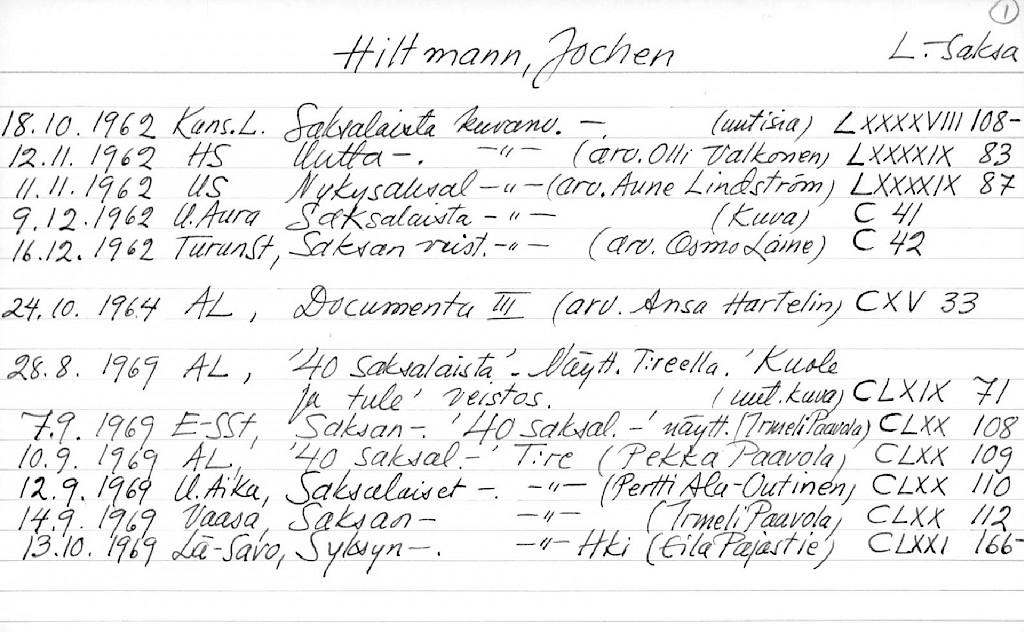 1
Hiltmann, Jochen L.-Saksa
18.10.1962 Kans.L. Saksalaista kuvanv. -. (uutisia) LXXXXVIII 108-
12.11.1962 HS Uutta -. -"- (arv. Olli Valkonen) LXXXXIX 83
11.11.1962 US Nykysaksal -"- (arv. Aune Lindström) LXXXXIX 87
9.12.1962 U.Aura Saksalaista -"- (Kuva) C 41
16.12.1962 TurunSt, Saksan veist. -"- (arv. Osmo Laine) C 42
24.10.1964 AL, Documenta III (arv. Ansa Hartelin) CXV 33
28.8.1969 AL, '40 saksalaista' - Näytt. Tireella. 'Kuole
ja tule' veistos. (uut. kuva) CLXIX 71
7.9.1969 E-SSt, Saksan -. '40 saksal. -' näytt. (Irmeli Paavola) CLXX 108
10.9.1969 AL, '40 saksal. -' Tire (Pekka Paavola) CLXX 109
12.9.1969 U.Aika, Saksalaiset -. -"- (Pertti Ala-Outinen) CLXX 110
14.9.1969 Vaasa, Saksan - -"- (Irmeli Paavola) CLXX 112
13.10.1969 Lä-Savo, Syksyn -. -"- Hki (Eila Pajastie) CLXXI 166-